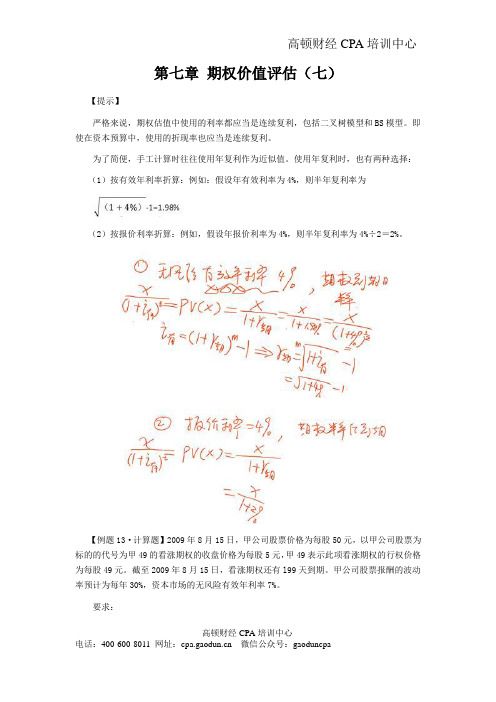 高顿财经 CPA 培训中心
第七章 期权价值评估（七）
【提示】
严格来说，期权估值中使用的利率都应当是连续复利，包括二叉树模型和 BS 模型。即
使在资本预算中，使用的折现率也应当是连续复利。
为了简便，手工计算时往往使用年复利作为近似值。使用年复利时，也有两种选择：
（1）按有效年利率折算：例如：假设年有效利率为 4%，则半年复利率为
√（1 + 4%）-1=1.98%
（2）按报价利率折算：例如，假设年报价利率为 4%，则半年复利率为 4%÷2＝2%。
① 无风险有效年利率 4%，期权到期日
半年
② 报价利率=4%，期权半年后到期
【例题 13·计算题】2009 年 8 月 15 日，甲公司股票价格为每股 50 元，以甲公司股票为
标的的代号为甲 49 的看涨期权的收盘价格为每股 5 元，甲 49 表示此项看涨期权的行权价格
为每股 49 元。截至 2009 年 8 月 15 日，看涨期权还有 l99 天到期。甲公司股票报酬的波动
率预计为每年 30%，资本市场的无风险有效年利率 7%。
要求：
高顿财经 CPA 培训中心
电话：400-600-8011 网址：cpa.gaodun.cn 微信公众号：gaoduncpa